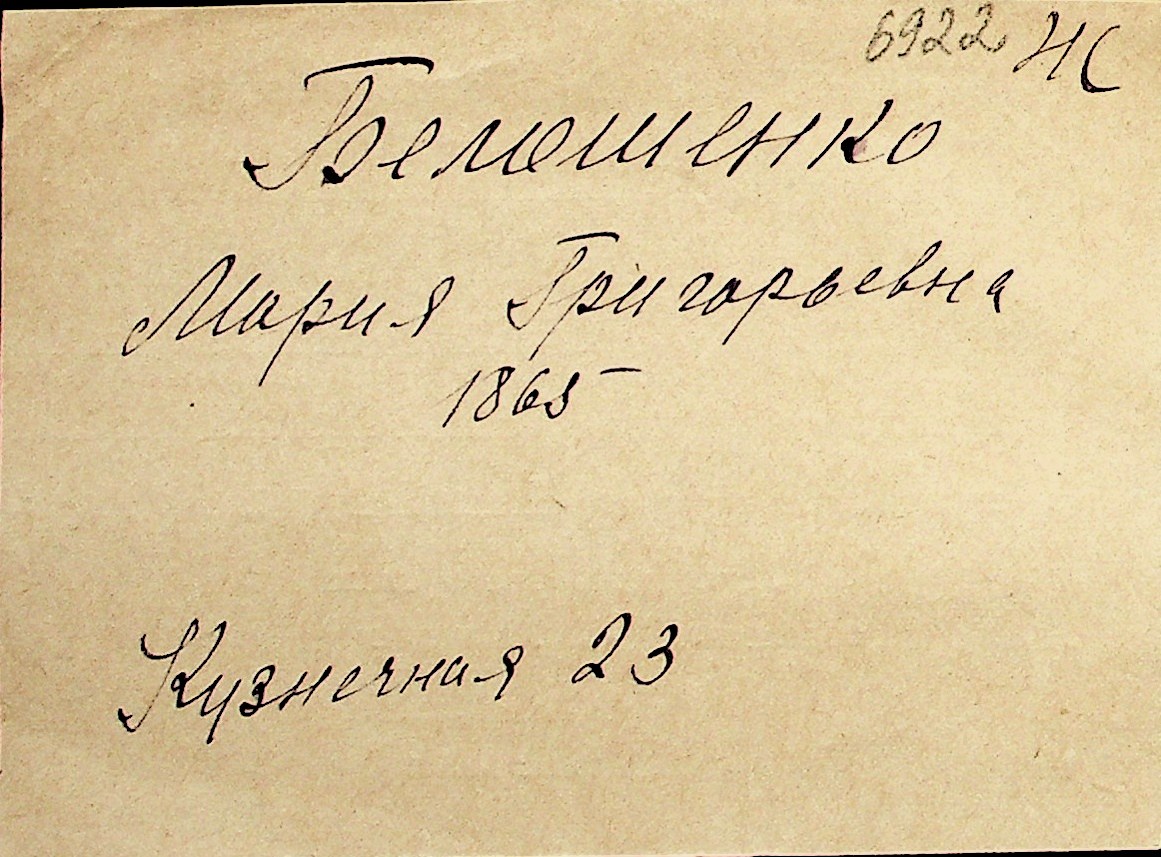 6922 НС
Белошенко
Мария Григорьевна
1865
Кузнечная 23